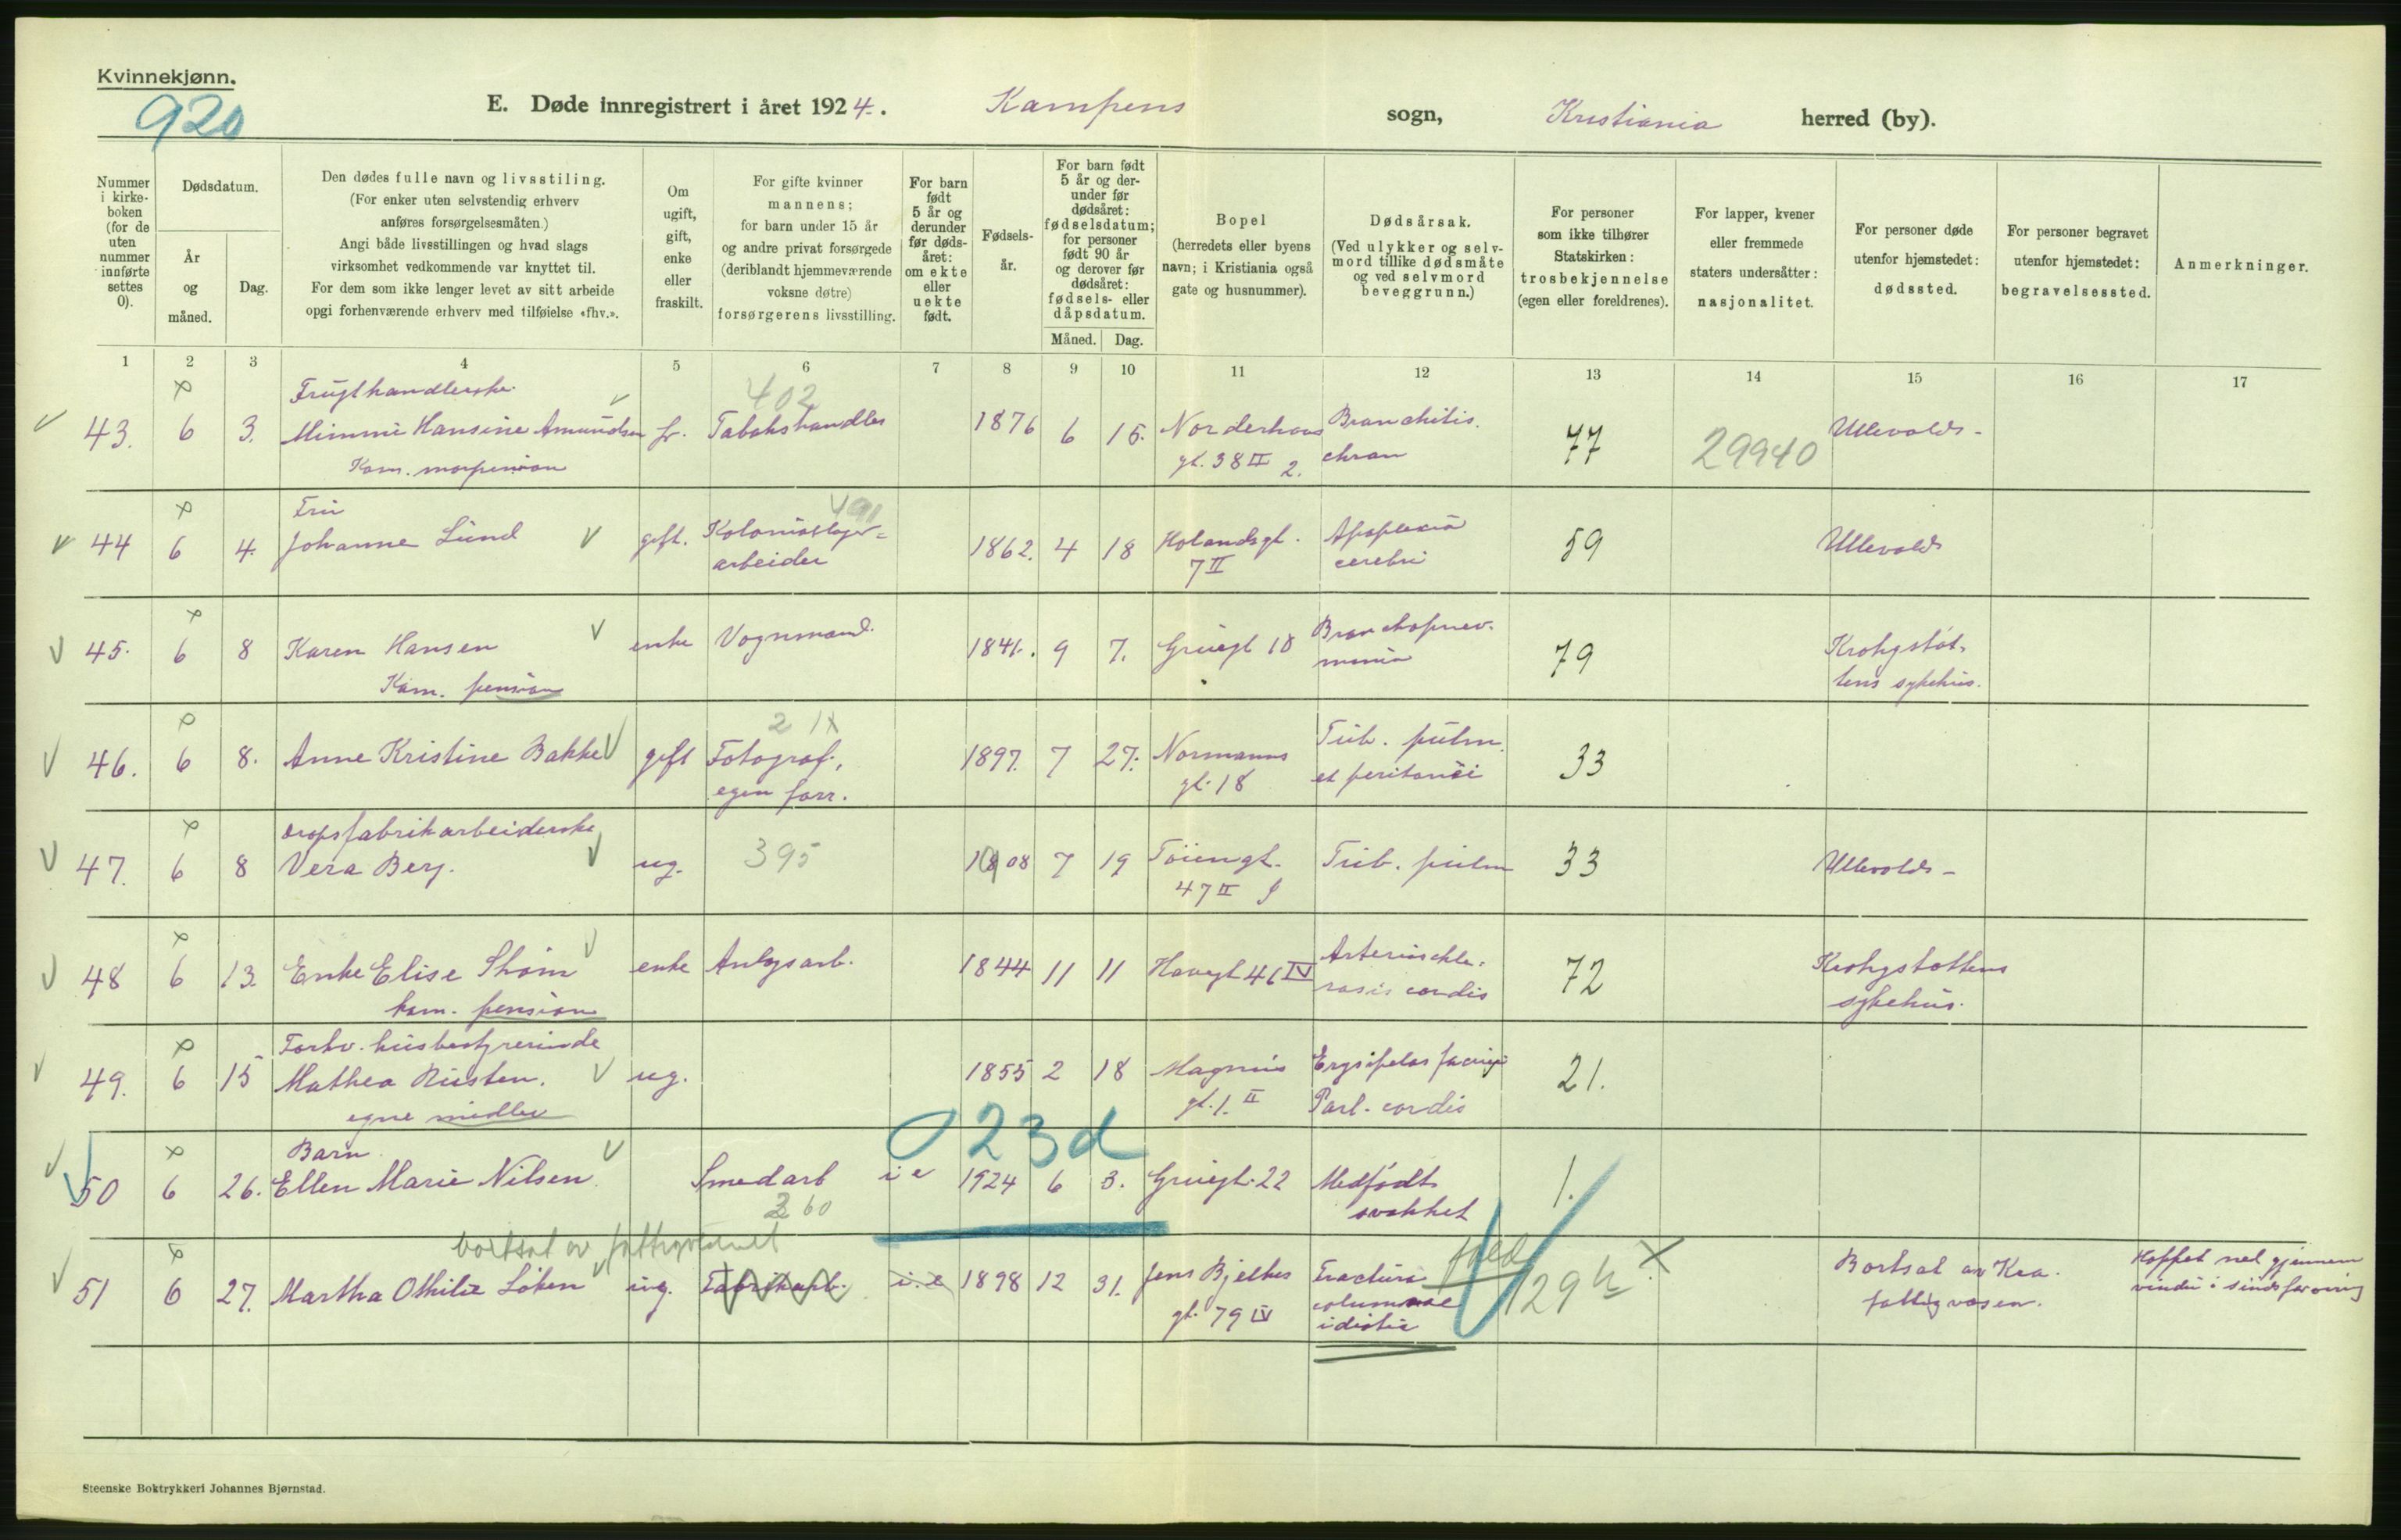 Kvinnekjønn.
920
E. Døde innregistrert i året 1924. Kampens sogn, Kristiania herred (by).
Nummer i kirkeboken (for de uten nummer innførte settes 0).
Dødsdatum.
År og måned.
Dag.
Den dødes fulle navn og livsstiling.
(For enker uten selvstendig erhverv
anføres forsørgelsesmåten.)
Angi både livsstillingen og hvad slags
virksomhet vedkommende var knyttet til.
For dem som ikke lenger levet av sitt arbeide
opgi forhenværende erhverv med tilføielse «fhv.».
Om ugift, gift, enke eller fraskilt.
For gifte kvinner
mannens;
for barn under 15 år
og andre privat forsørgede
(deriblandt hjemmeværende
voksne døtre)
forsørgerens livsstilling.
For barn født 5 år og derunder før dødsåret: om ekte eller uekte født.
Fødselsår.
For barn født 5 år og derunder før dødsåret: fødselsdatum; for personer født 90 år og derover før dødsåret: fødsels- eller dåpsdatum.
Måned. Dag.
Bopel
(herredets eller byens
navn; i Kristiania også
gate og husnummer).
Dødsårsak.
(Ved ulykker og selvmord tillike dødsmåte
og ved selvmord
beveggrunn.)
For personer
som ikke tilhører
Statskirken:
trosbekjennelse
(egen eller foreldrenes).
For lapper, kvener
eller fremmede
staters undersåtter:
nasjonalitet.
For personer døde
utenfor hjemstedet:
dødssted.
For personer begravet
utenfor hjemstedet:
begravelsessted.
Anmerkninger.
1 2 3 4 5 6 7 8 9 10 11 12 13 14 15 16 17
Frugthandlerske 402
43. 6 3. Mimmi Hansine Amundsen fr. Tabakshandler 1876 6 15. Norderhovs Bronchitis 77 29940 Ullevolds-
Kom. morpension gt. 38 II 2. chron
Fru
44 6 4. Johanne Lund gift. Koloniallager- 1862. 4 18 Holandsgt. Apoplexia 59 Ullevolds
arbeider 7 II cerebri
45. 6 8 Karen Hansen enke Vognmand. 1841. 9 7. Gruegt 18 Bronchopnev- 79 Krohgstøt-
Kom. pension monia tens sykehus.
2 1x
46. 6 8. Anne Kristine Bakke gift Fotograf, 1897. 7 27. Normanns Tub. pulm. 33
egen forr. gt. 18 et peritonei
Dropsfabrikarbeiderske
47. 6 8 Vera Berg. ug. 395 1908 7 19 Töiengt. Tub. pulm 33 Ullevolds-
47 II
48 6 13. Enke Elise Strøm enke Anlegsarb. 1844 11 11 Havegt 46 IV Arterioskle- 72 Krohgstøttens
kom. pension rosis cordis sykehus.
Forhv. husbestyrerinde
49. 6 15 Mathea Rusten. ug. 1855 2 18 Magnus Erysipelas faciei 21.
egne midler gt. 1. II Parl. cordis
Barn 0 23d
50 6 26. Ellen Marie Nilsen Smedarb i e 1924 6 3. Gruegt. 22 Medfødt 1.
260 svakhet
bortsat av fattigvesenet
51 6 27. Martha Othilie Løken ug. Fabrikarb. i. e 1898 12 31. Jens Bjelkes Fractura 129 h x Bortsat av Kra. Hoppet ned gjennem
gt. 79 IV columnae fattigvæsen. vindu i sindsforvirring
idiotia
Steenske Boktrykkeri Johannes Bjørnstad.